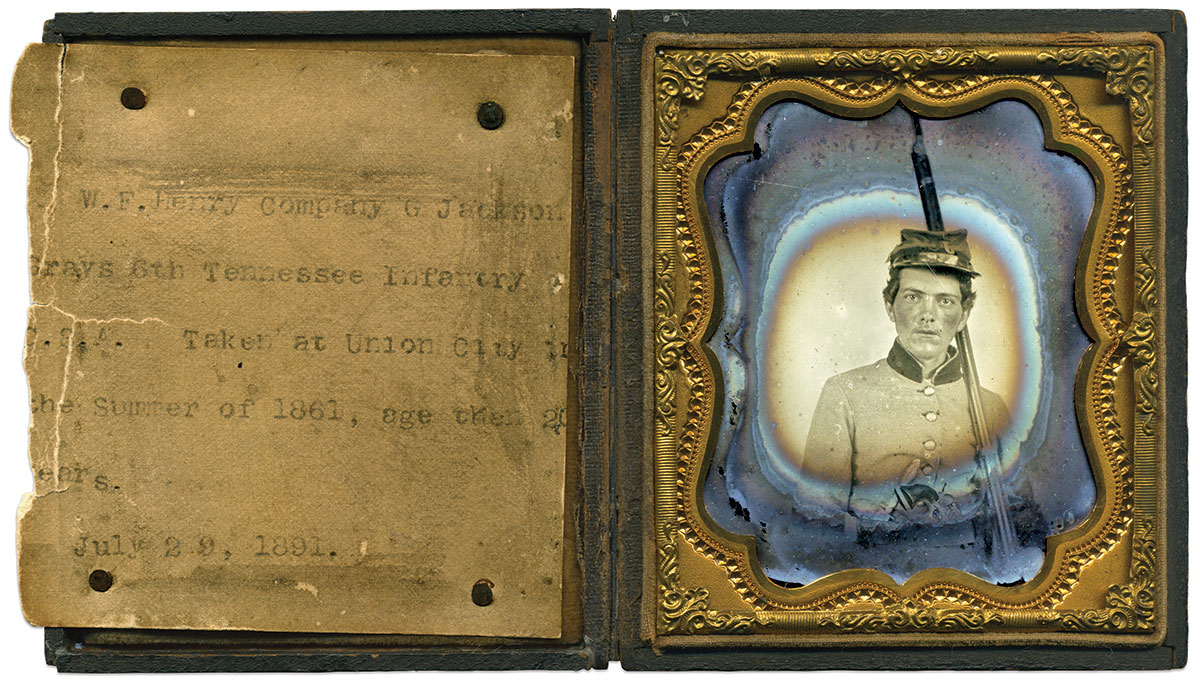 W.F.Henry Company G Jackson
Grays 6th Tennessee Infantry
C.S.A. Taken at Union City in
the Summer of 1861, age then
years.
July 29, 1891.